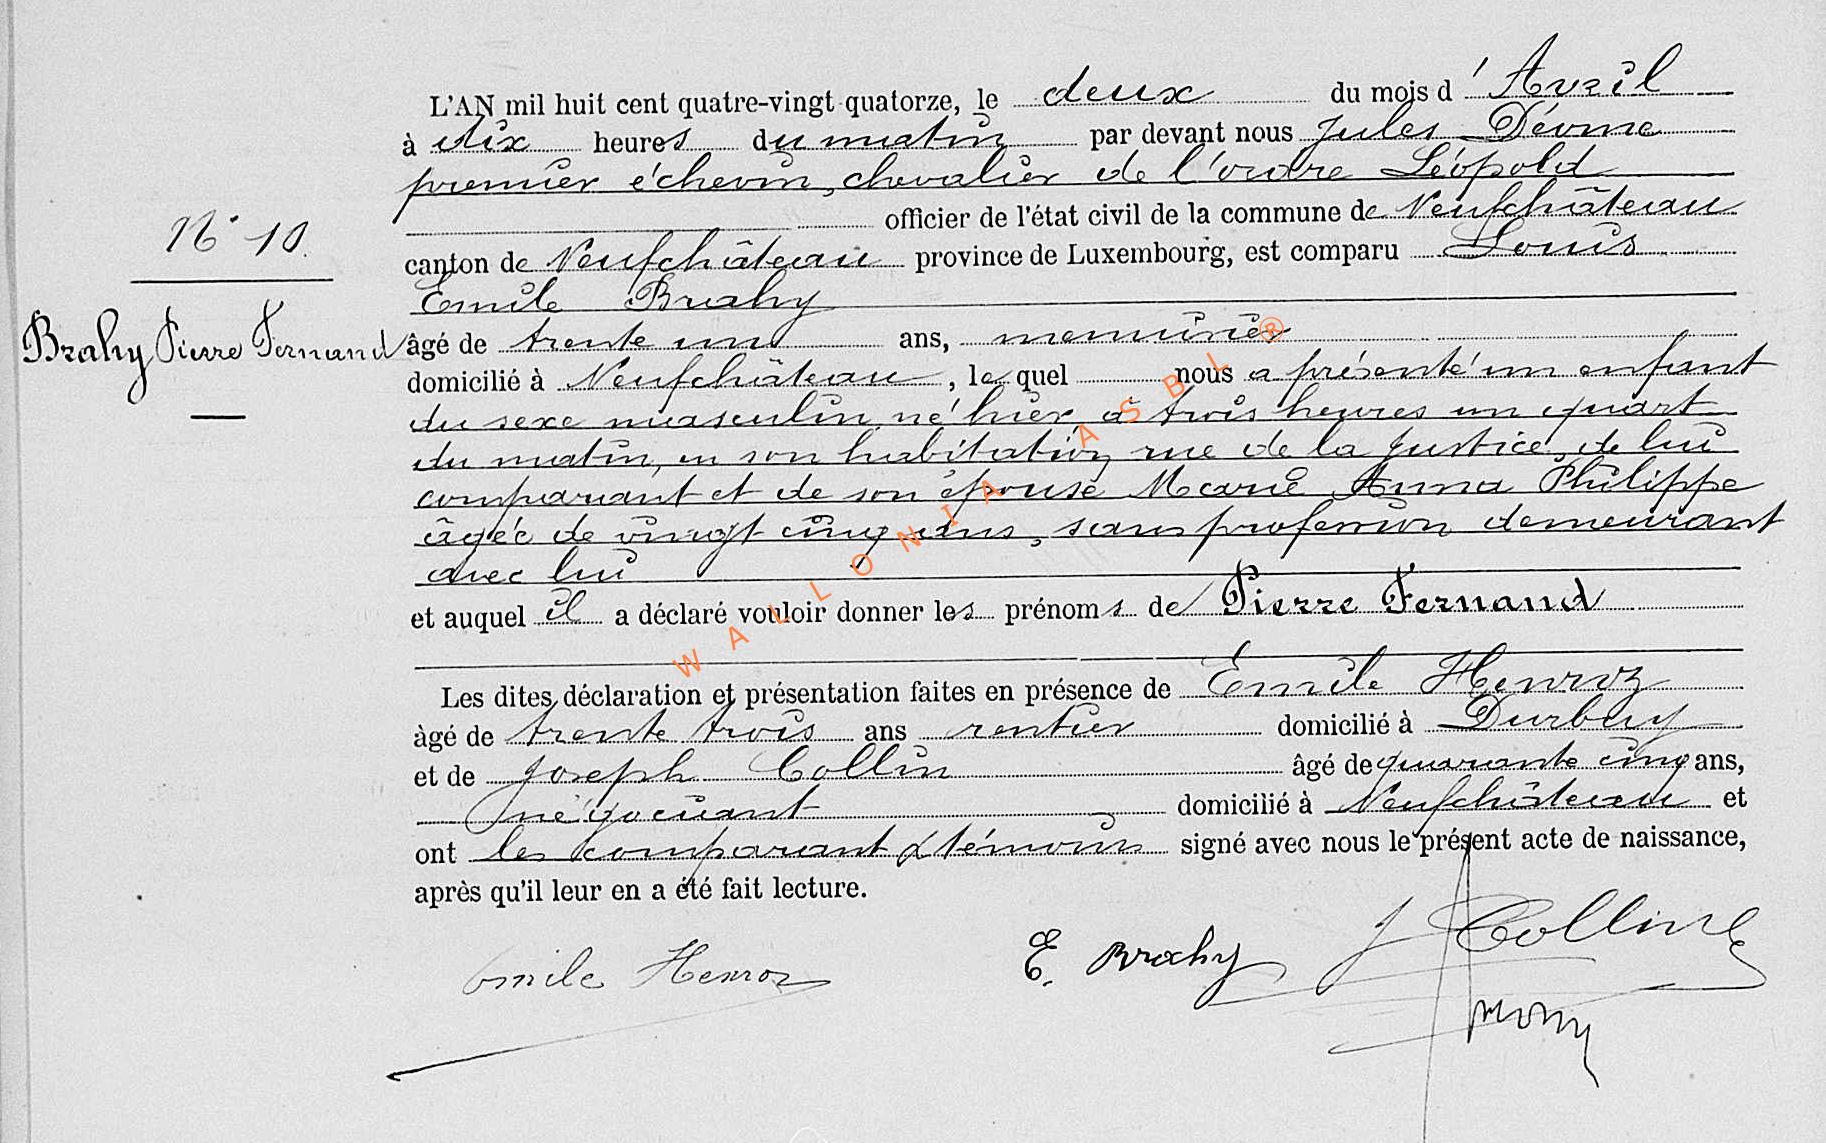 L'AN mil huit cent quatre-vingt quatorze, le deux du mois d'Avril
à dix heures du matin par devant nous Jules
premier échevin, chevalier de l'ordre Léopold
officier de l'état civil de la commune de Neufchâteau
canton de Neufchâteau province de Luxembourg, est comparu Louis
Emile Brahy
âgé de trente un ans, menuisier
domicilié à Neufchâteau, lequel nous a présenté un enfant
du sexe masculin, né hier, à trois heures un quart
du matin, en son habitation rue de la Justice, de lui
comparant et de son épouse Marie Anna Philippe
âgée de vingt cinq ans, sans profession demeurant
avec lui
et auquel il a déclaré vouloir donner les prénoms de Pierre Fernand
Les dites déclaration et présentation faites en présence de Emile Henroz
âgé de trente trois ans rentier domicilié à Durbuy
et de Joseph Collin âgé de quarante cinq ans,
négociant domicilié à Neufchâteau et
ont les comparant & témoins signé avec nous le présent acte de naissance,
après qu'il leur en a été fait lecture.
N° 10.
Brahy Pierre Fernand
Emile Henroz
E. Brahy
J Collin
WALLONIA ASBL ®